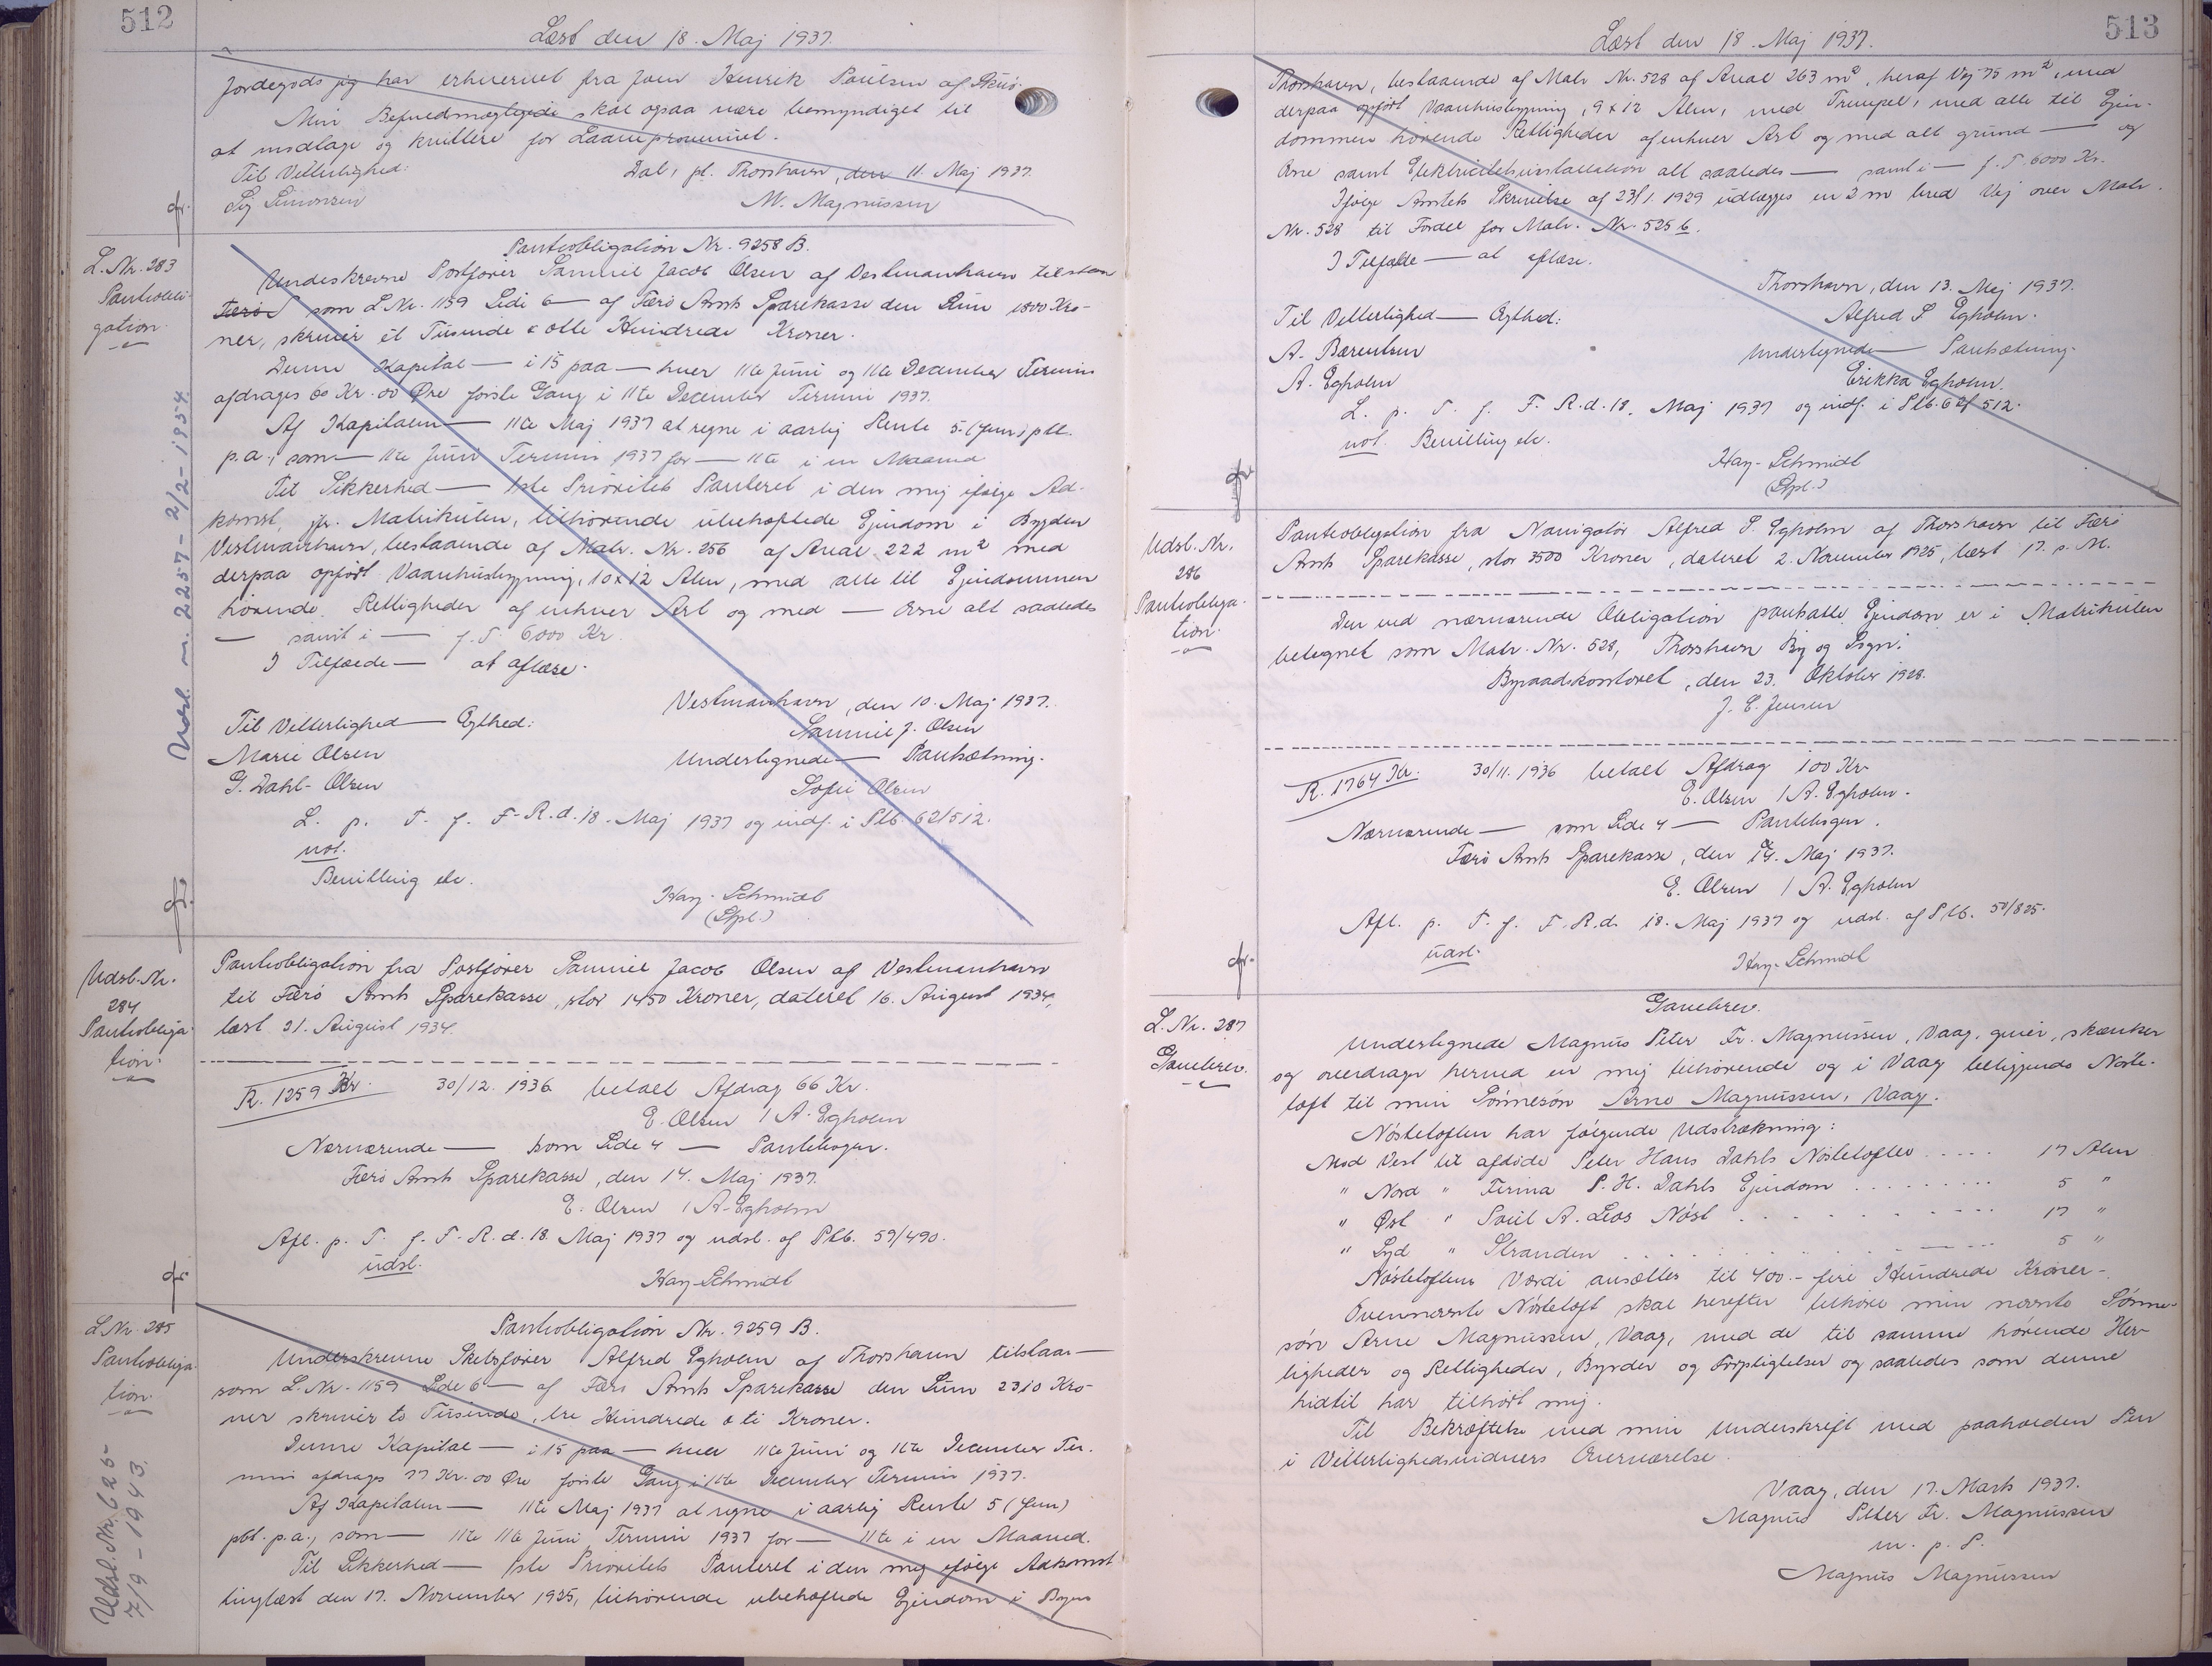 512
Læst den 18. Maj 1937.
Jordegods jeg har erhvervet fra Joen Henrik Poulsen af
Min Befuldmægtigede skal ogsaa være bemyndiget til
at modtage og kvittere for Laaneprovenuet.
Til Vitterlighed: Dal, pl. Thorshavn, den 11. Maj 1937.
Sig Simonsen M. Magnussen
L. Nr. 283
Pantobli-
gation.
Udsl. nr. 2257 - 2/2 - 1954.
Pantobligation Nr. 9258 B.
Undeskrevne Postfører Samuel Jacob Olsen af Vestmanhavn tilstaar
Færø som L Nr. 1159 Side 6 — af Færø Amts Sparekasse den Sum 1800 Kro-
ner, skriver et Tusende & otte Hundrede Kroner.
Denne Kapital — i 15 paa — hver 11te Juni og 11te December Termin
afdrages 60 Kr. 00 Øre første Gang i 11te December Termin 1937.
Af Kapitalen — 11te Maj 1937 at regne i aarlig Rente 5 (fem) pCt.
p.a., som — 11te Juni Termin 1937 for — 11te i en Maaned
Til Sikkerhed — 1ste Prioritets Panteret i den mig ifølge Ad-
komst, jfr. Matrikulen, tilhørende ubehæftede Ejendom i Bygden
Vestmanhavn, bestaaende af Matr. Nr. 256 af Areal 222 m² med
derpaa opført Vaaningsbygning, 10 x 12 Alen, med alle til Ejendommen
hørende Rettigheder af enhver Art og med — Evne alt saaledes
— samt i — f. T. 6000 Kr.
I Tilfælde — at aflæse.
Vestmanhavn, den 10. Maj 1937.
Til Vitterlighed — Ægthed: Samuel J. Olsen
Marie Olsen Undertegnede — Pantsætning.
G. Dahl-Olsen Sofie Olsen
L. p. T. f. F. R. d. 18. Maj 1937 og indf. i Ptb. 62/512.
not.
Bevilling etc.
Hay-Schmidt
(Stpl.)
Udsl. Nr.
284
Pantobliga-
tion.
Pantobligation fra Postfører Samuel Jacob Olsen af Vestmanhavn
til Færø Amts Sparekasse, stor 1450 Kroner, dateret 16. August 1934,
læst 21. August 1934.
R. 1259 Kr. 30/12. 1936 betalt Afdrag 66 Kr.
E. Olsen / A. Egholm
Nærværende — som Side 4 — Pantebogen.
Færø Amts Sparekasse, den 14. Maj 1937.
E. Olsen / A. Egholm
Afl. p. T. f. F. R. d. 18. Maj 1937 og udsl. af Ptb. 59/490.
udsl.
Hay-Schmidt
L Nr. 285
Pantobliga-
tion.
Udsl. Nr. 625-
7/9-1943.
Pantobligation Nr. 9259 B.
Underskrevne Skibsfører Alfred Egholm af Thorshavn tilstaar —
som L. Nr. 1159 Side 6 — af Færø Amts Sparekasse den Sum 2310 Kro-
ner skriver to Tusinde, tre Hundrede & ti Kroner.
Denne Kapital — i 15 paa — hver 11te Juni og 11te December Ter-
min afdrages 77 Kr. 00 Øre første Gang i 11te December Termin 1937.
Af Kapitalen — 11te Maj 1937 at regne i aarlig Rente 5 (fem)
pCt. p.a., som — 11te 11te Juni Termin 1937 for — 11te i en Maaned.
Til Sikkerhed — 1ste Prioritets Panteret i den mig ifølge Adkomst
tinglæst den 17. November 1925, tilhørende ubehæftede Ejendom i Byen
513
Læst den 18. Maj 1937.
Thorshavn, bestaaende af Matr Nr. 528 af Areal 263 m², heraf Vej 75 m², med
derpaa opført Vaaningsbygning, 9 x 12 Alen, med Trempel, med alle til Ejen-
dommen hørende Rettigheder af enhver Art og med alt grund — og
Evne samt Elektricitetsinstallation alt saaledes — samt i — f. T. 6000 Kr.
Ifølge Amtets Skrivelse af 23/1. 1929 udlægges en 2 m bred Vej over Matr.
Nr. 528 til Fordel for Matr. Nr. 525 b.
I Tilfælde — at aflæse.
Thorshavn, den 13. Maj 1937.
Til Vitterlighed — Ægthed: Alfred S Egholm.
A. Bærentsen Undertegnede — Pantsætning.
A. Egholm Erikka Egholm.
L. p. T. f. F. R. d. 18. Maj 1937 og indf. i Ptb. 62/512.
not. Bevilling etc.
Hay-Schmidt
(Stpl.)
Udsl. Nr.
286
Pantobliga-
tion.
Pantobligation fra Navigatør Alfred S. Egholm af Thorshavn til Færø
Amts Sparekasse, stor 3500 Kroner, dateret 2. November 1925, læst 17. s. M.
Den ved nærværende Obligation pantsatte Ejendom er i Matrikulen
betegnet som Matr. Nr. 528, Thorshavn By og Sogn.
Byraadskontoret, den 23. Oktober 1928.
J. C. Jensen
R. 1764 Kr. 30/11. 1936 betalt Afdrag 100 Kr.
E. Olsen / A. Egholm.
Nærværende — som Side 4 — Pantebogen.
Færø Amts Sparekasse, den 14. Maj 1937.
E. Olsen / A. Egholm
Afl. p. T. f. F. R. d. 18. Maj 1937 og udsl. af Ptb. 50/825.
udsl.
Hay-Schmidt
L. Nr. 287
Gavebrev.
Gavebrev.
Undertegnede Magnus Peter Fr. Magnussen, Vaag, giver, skænker
og overdrager herved en mig tilhørende og i Vaag beliggende Nøste-
loft til min Sønnesøn Arne Magnussen, Vaag.
Nøsteloften har følgende Udstrækning:
Mod Vest til afdøde Peter Hans Dahls Nøstetofter ..... 17 Alen
" Nord " Firma P. H. Dahls Ejendom ......... 5 "
" Øst " Poul A. Leos Nøst ......... 17 "
" Syd " Stranden ......... 5 "
Nøsteloftens Værdi ansættes til 400.- fire Hundrede Kroner-.
Ovennævnte Nøsteloft skal herefter tilhøre min nævnte Sønne-
søn Arne Magnussen, Vaag, med de til samme hørende Her-
ligheder og Rettigheder, Byrder og Forpligtelser og saaledes som denne
hidtil har tilhørt mig.
Til Bekræftelse med min Underskrift med paaholden Pen
i Vitterlighedsvidners Overværelse.
Vaag, den 17. Marts 1937.
Magnus Peter Fr. Magnussen
m. p. P.
Magnus Magnussen